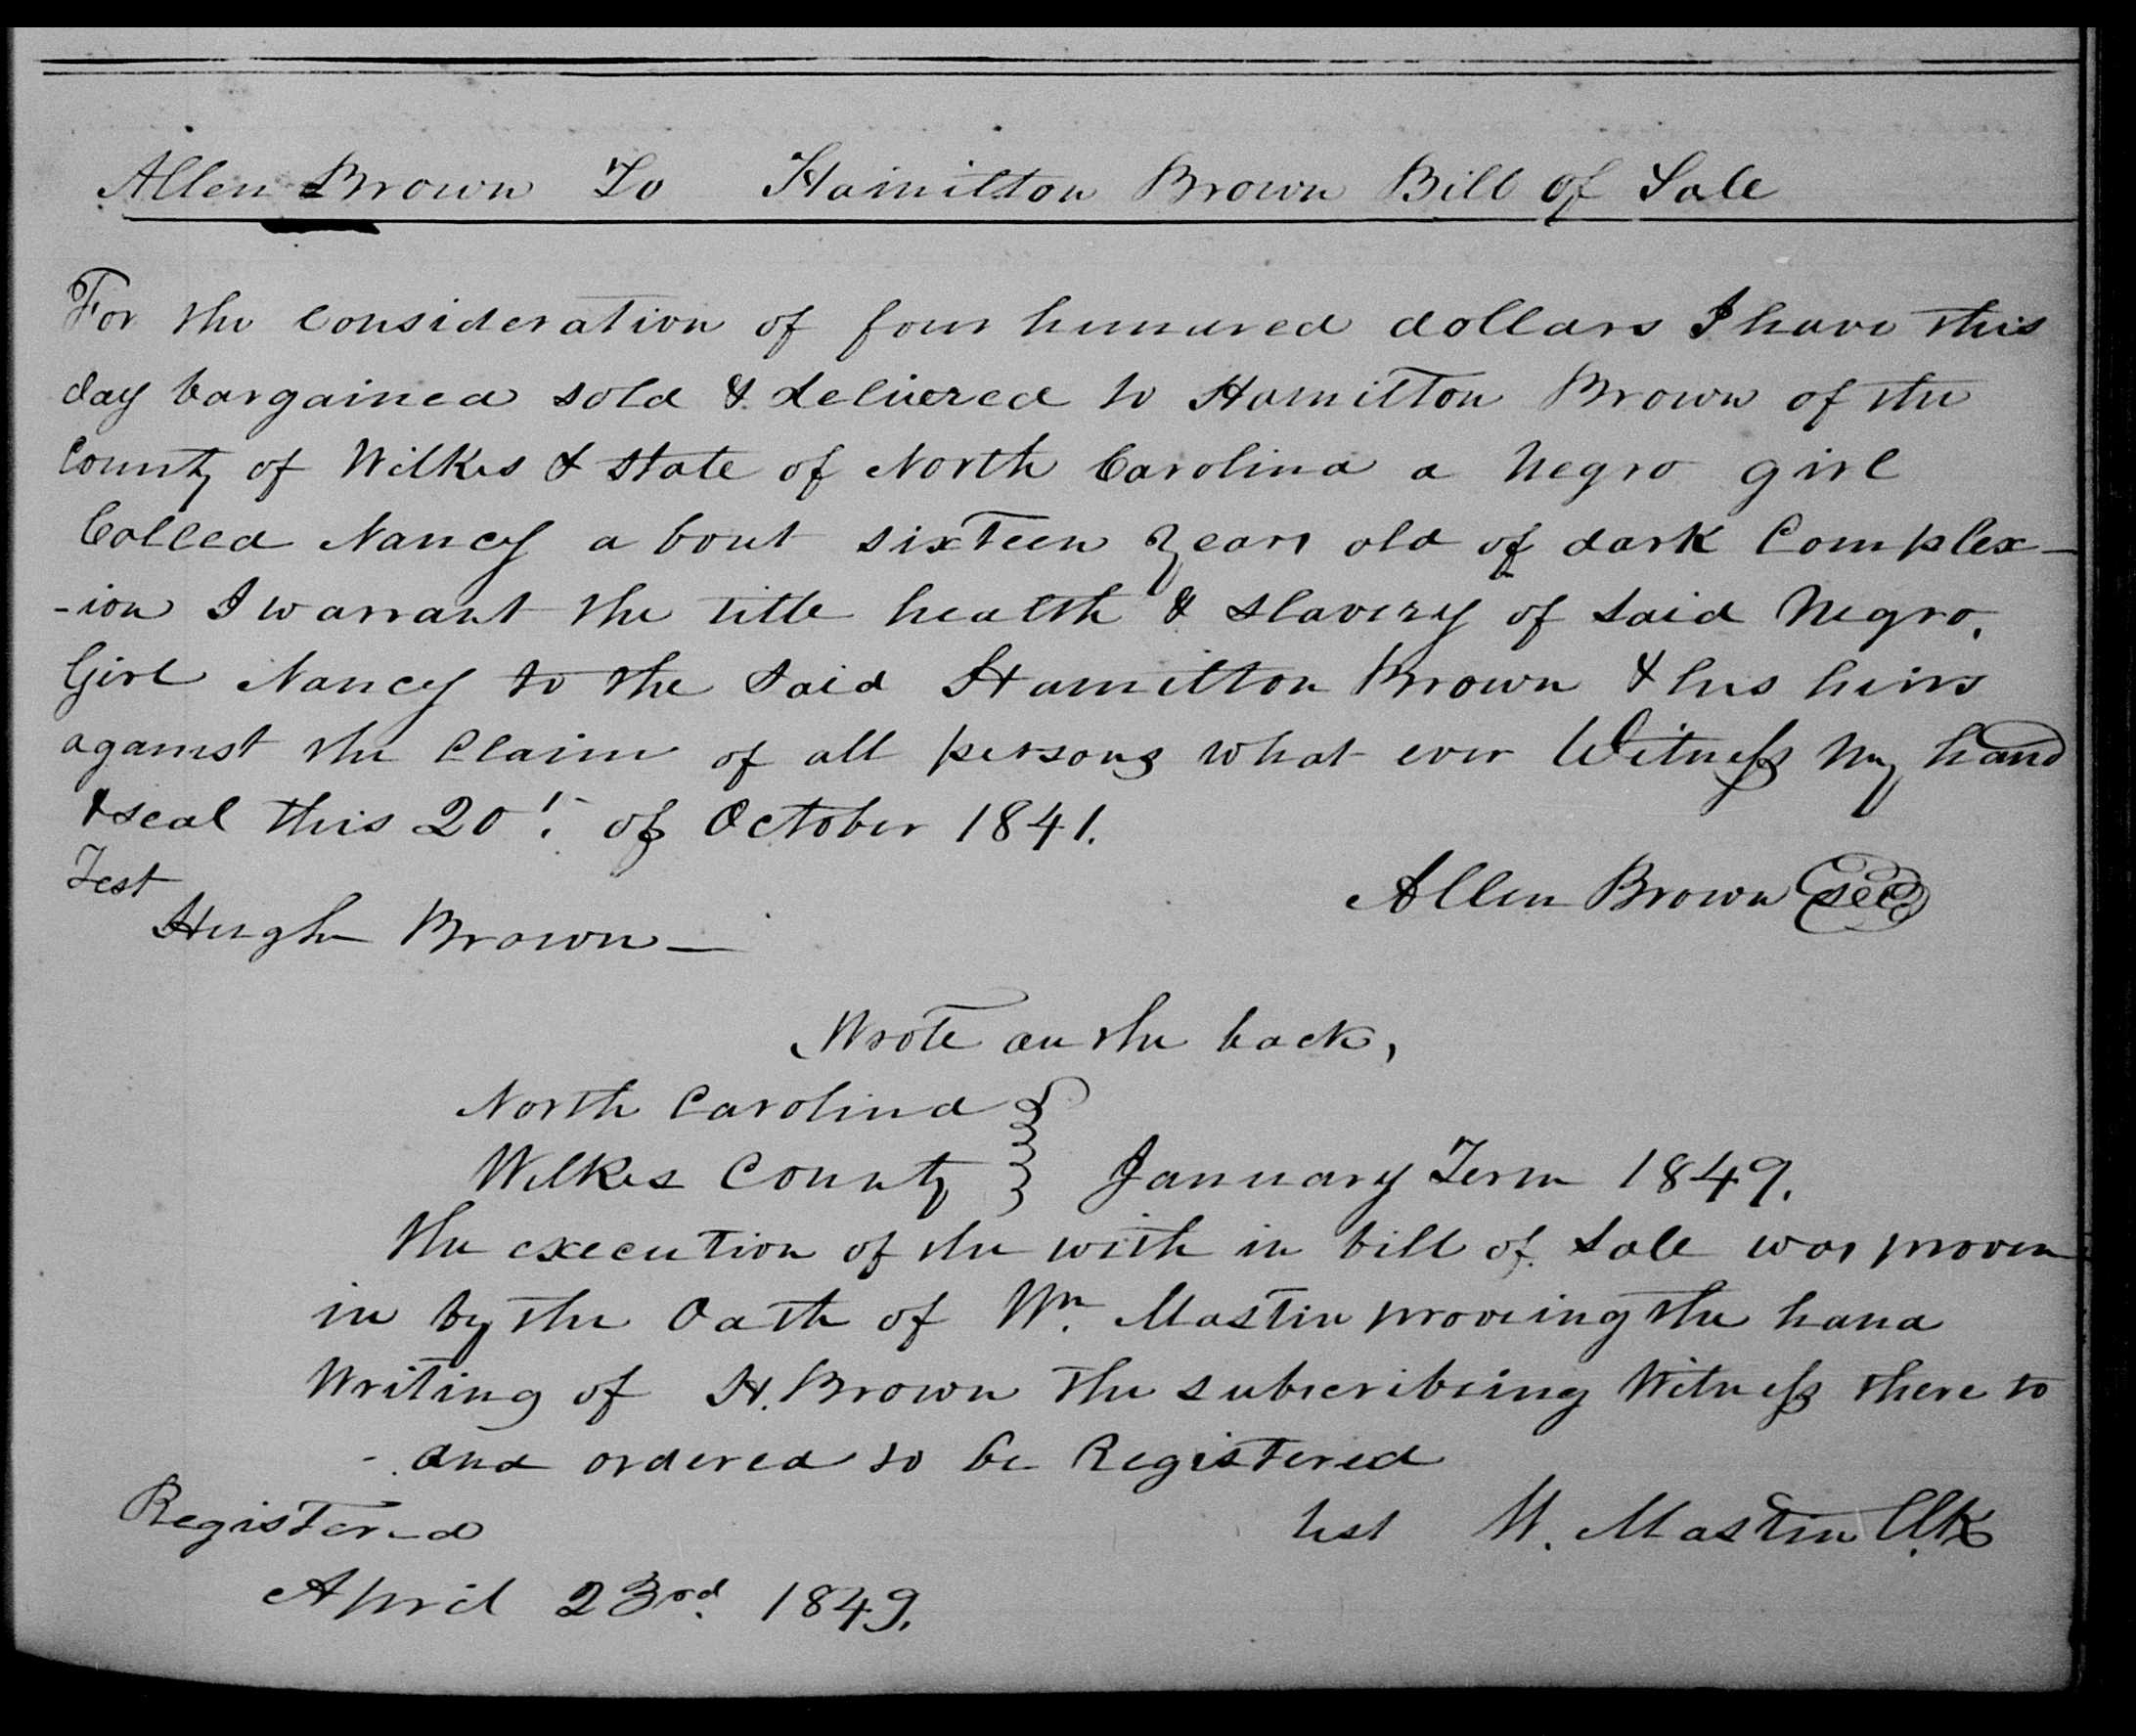 Allen Brown To Hamilton Brown Bill of Sale
For the Consideration of four hundred dollars I have this
day bargained sold & delivered to Hamilton Brown of the
County of Wilkes & State of North Carolina a Negro girl
Called Nancy a bout sixteen years old of dark Complex-
-ion I warrant the title health & slavery of said Negro.
Girl Nancy to the said Hamilton Brown & his heirs
against the Claim of all persons what ever Witness my hand
& seal this 20t. of October 1841.
Test
Allen Brown Seal
Hugh Brown —
Wrote on the back,
North Carolina
Wilkes County } January Term 1849.
The execution of the with in bill of Sale was proven
in by the Oath of Wm. Mastin proveing the hand
Writing of H. Brown the subscribeing Witness there to
- and ordered to be Registered
Registered
test W. Mastin Clk
April 23rd. 1849.